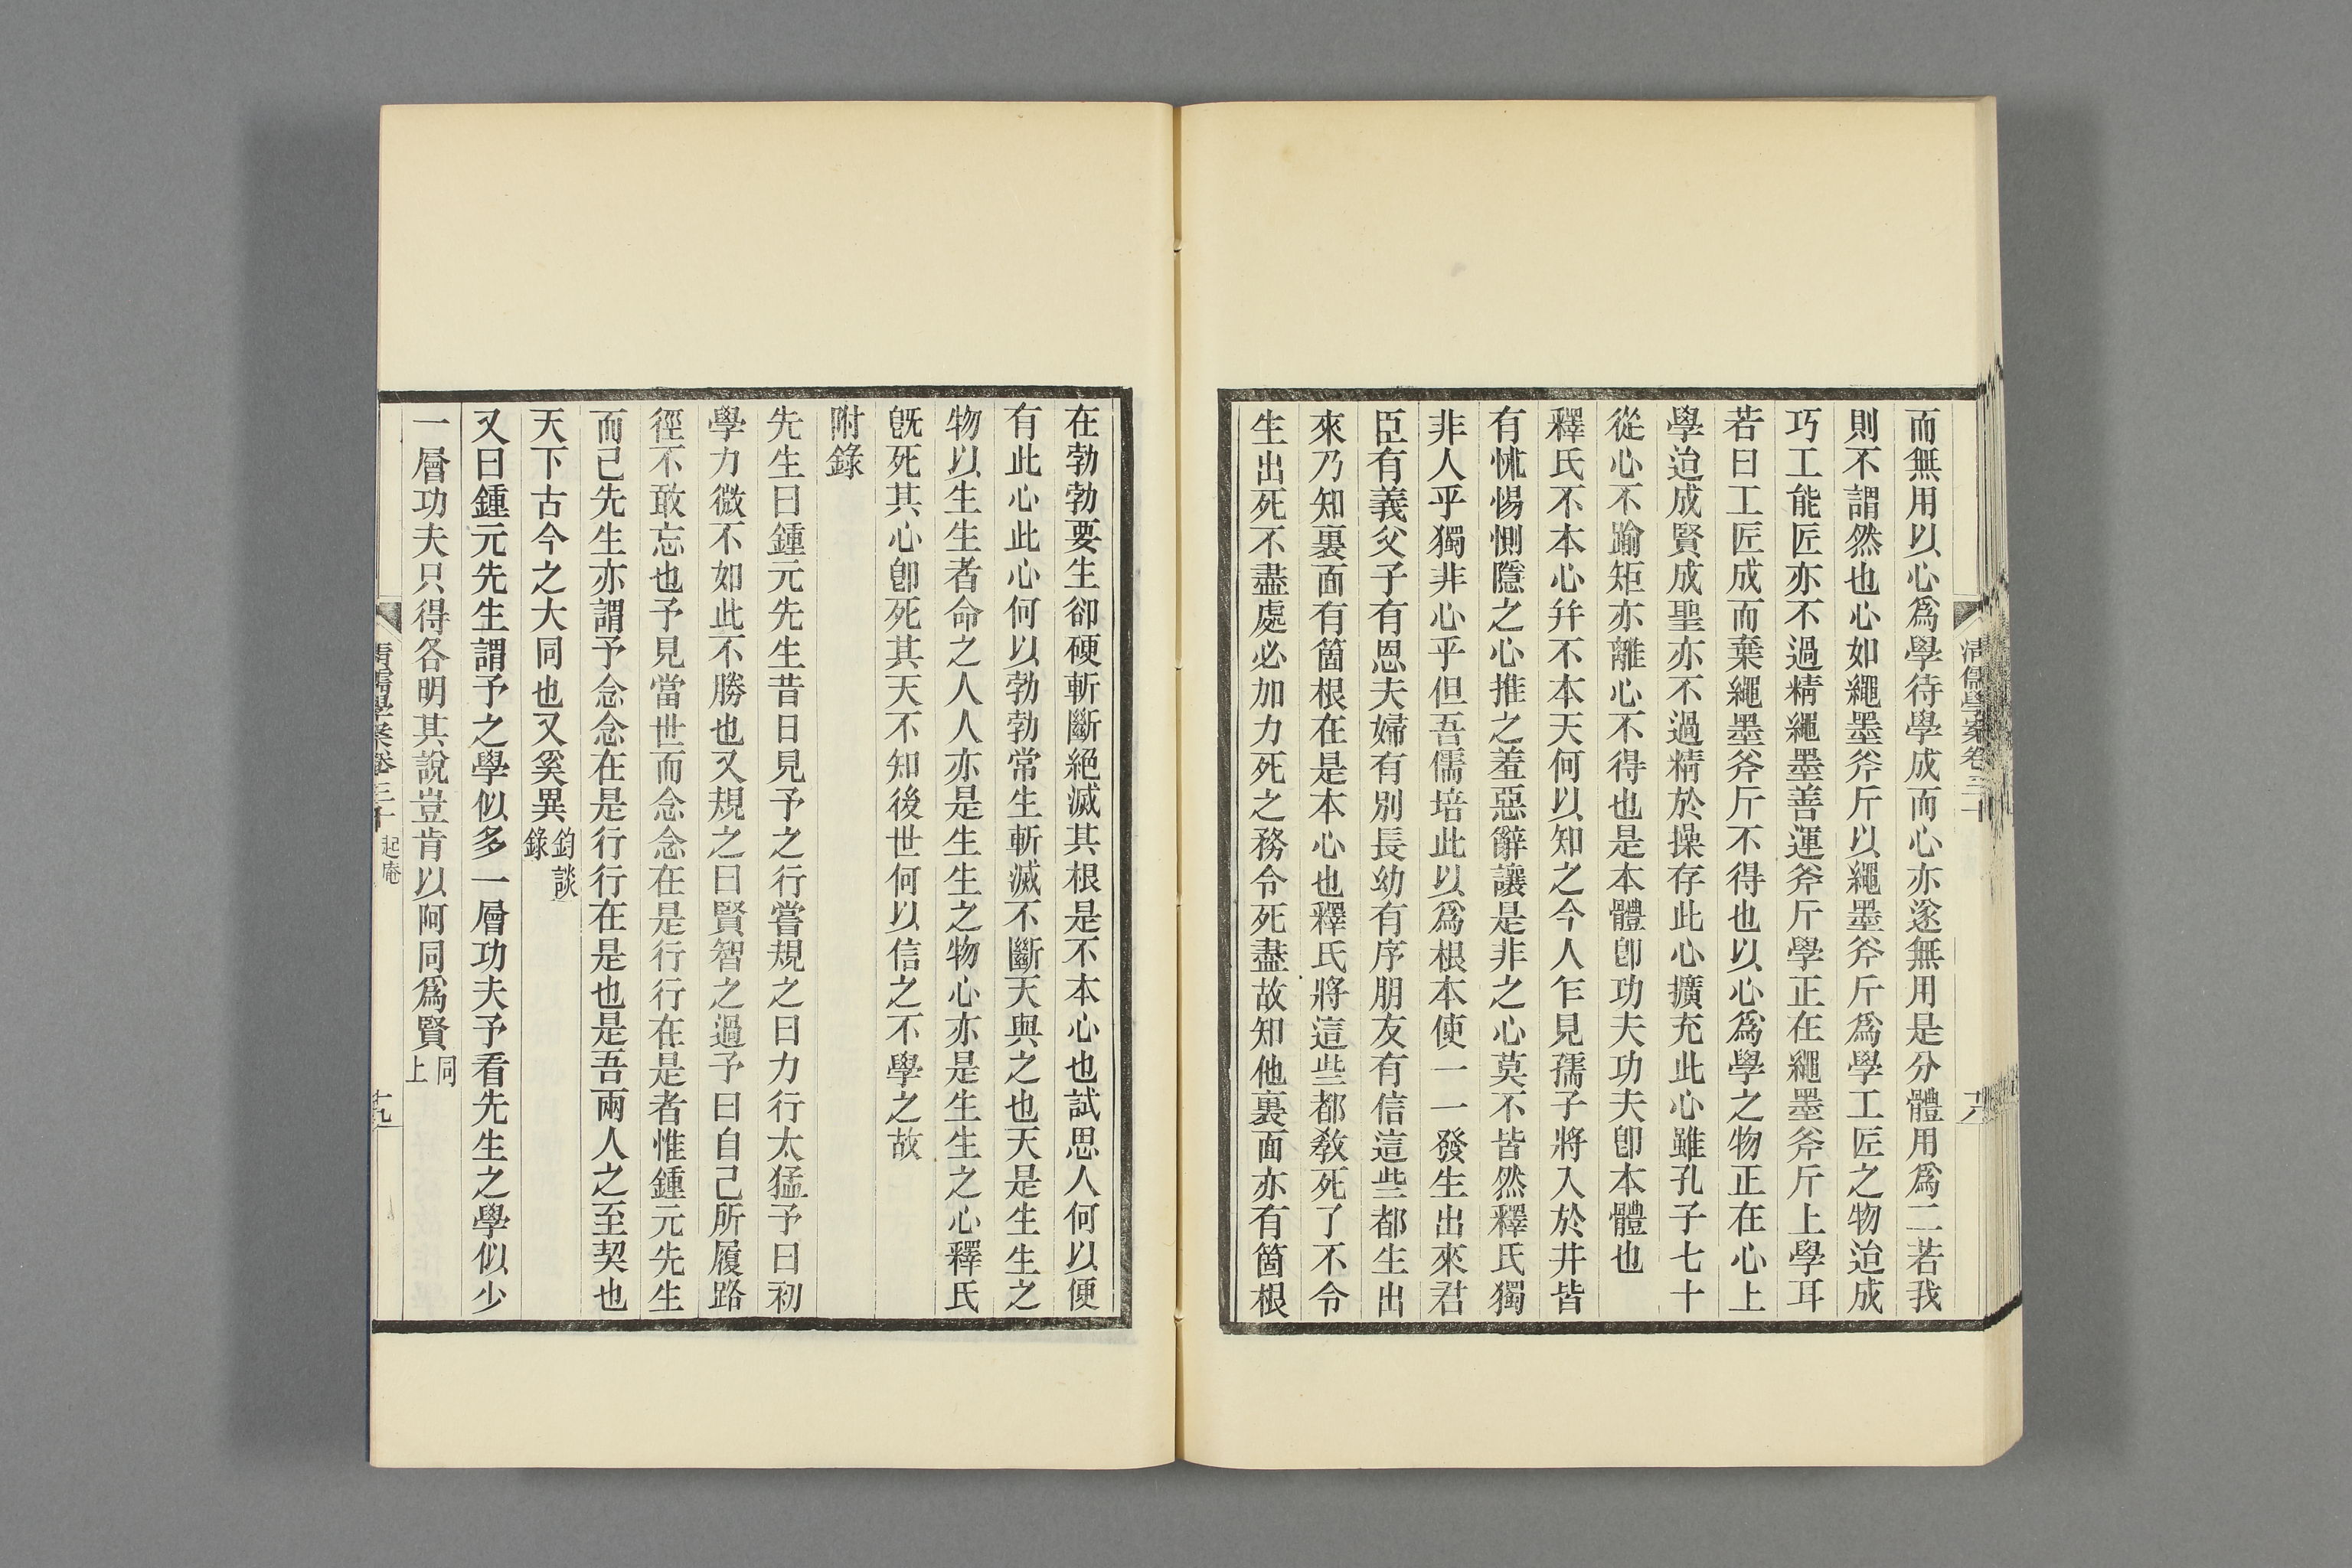 清儒學案卷三十
十八
而無用以心爲學待學成而心亦遂無用是分體用爲二若我
則不謂然也心如繩墨斧斤以繩墨斧斤爲學工匠之物迨成
巧工能匠亦不過精繩墨善運斧斤學正在繩墨斧斤上學耳
若曰工匠成而棄繩墨斧斤不得也以心爲學之物正在心上
學迨成賢成聖亦不過精於操存此心擴充此心雖孔子七十
從心不踰矩亦離心不得也是本體卽功夫功夫卽本體也
釋氏不本心幷不本天何以知之今人乍見孺子將入於井皆
有怵惕惻隱之心推之羞惡辭讓是非之心莫不皆然釋氏獨
非人乎獨非心乎但吾儒培此以爲根本使一一發生出來君
臣有義父子有恩夫婦有別長幼有序朋友有信這些都生出
來乃知裏面有箇根在是本心也釋氏將這些都敎死了不令
生出死不盡處必加力死之務令死盡故知他裏面亦有箇根
在勃勃要生卻硬斬斷絕滅其根是不本心也試思人何以便
有此心此心何以勃勃常生斬滅不斷天與之也天是生生之
物以生生者命之人人亦是生生之物心亦是生生之心釋氏
旣死其心卽死其天不知後世何以信之不學之故
附錄
先生曰鍾元先生昔日見予之行嘗規之曰力行太猛予曰初
學力微不如此不勝也又規之曰賢智之過予曰自己所履路
徑不敢忘也予見當世而念念在是行行在是者惟鍾元先生
而己先生亦謂予念念在是行行在是也是吾兩人之至契也
天下古今之大同也又奚異鈞談錄
又曰鍾元先生謂予之學似多一層功夫予看先生之學似少
一層功夫只得各明其說豈肯以阿同爲賢同上
清儒學案卷三十 起庵
十九